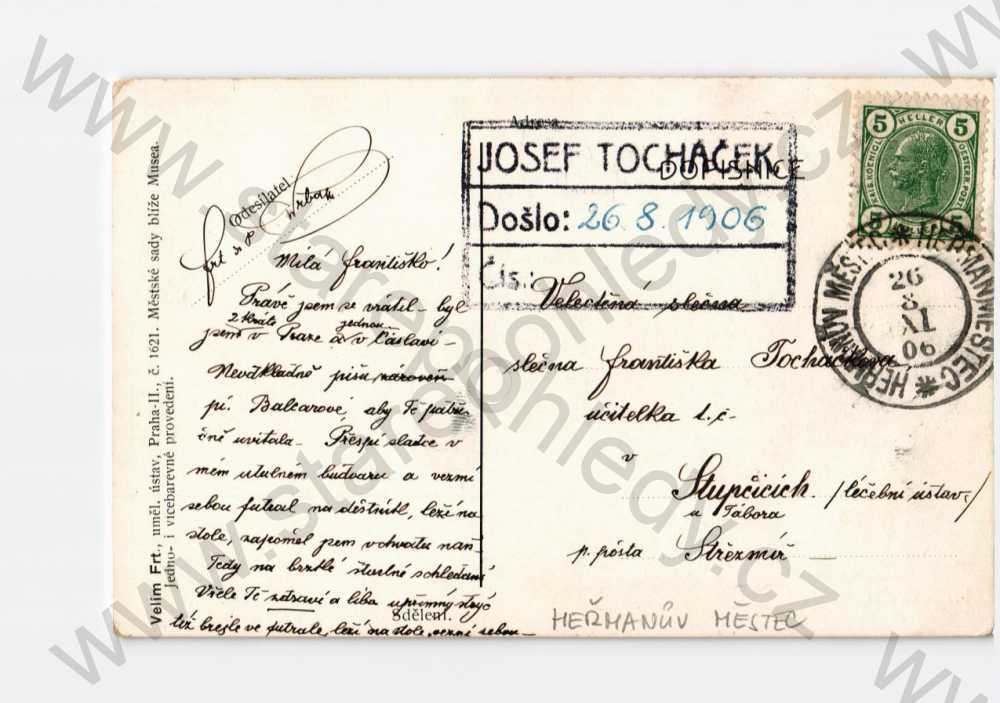 Velim Frt., uměl. ústav, Praha-II., č. 1621. Městské sady blíže Musea.
Jedno- i vícebarevné provedení.
Odesílatel
Frt
Milá Františko!
Právě jsem se vrátil – byl
2 kráte jednou
jsem v Praze a v Čáslavi –
Neodkladně píšu
pí. Balcarové, aby Tě patři-
čně uvítala – Přespi sladce v
mém útulném a vezmi
sebou futrál na deštník, leží na
stole, zapoměl jsem v chvatu naň –
Tedy na brzké šťastné shledání
Vřele Tě zdraví a líbá upřímný
též brejle ve futrale, leží na stole, vezmi sebou –
Sdělení.
Adresa
DOPISNICE
JOSEF TOCHÁČEK
Došlo: 26. 8. 1906
Čís.:
Velectěná slečna
slečna Františka Tocháčkova
učitelka t. č.
v
Stupčicích /léčební ústav/
u Tábora
p. pošta Střezmíř
HEŘMANŮV MĚSTEC
5 HELLER 5
5 5
HEŘMANMĚSTEC * HEŘMANŮV MĚSTEC *
26
8
XI
06
www.starepohledy.cz
www.starepohledy.cz